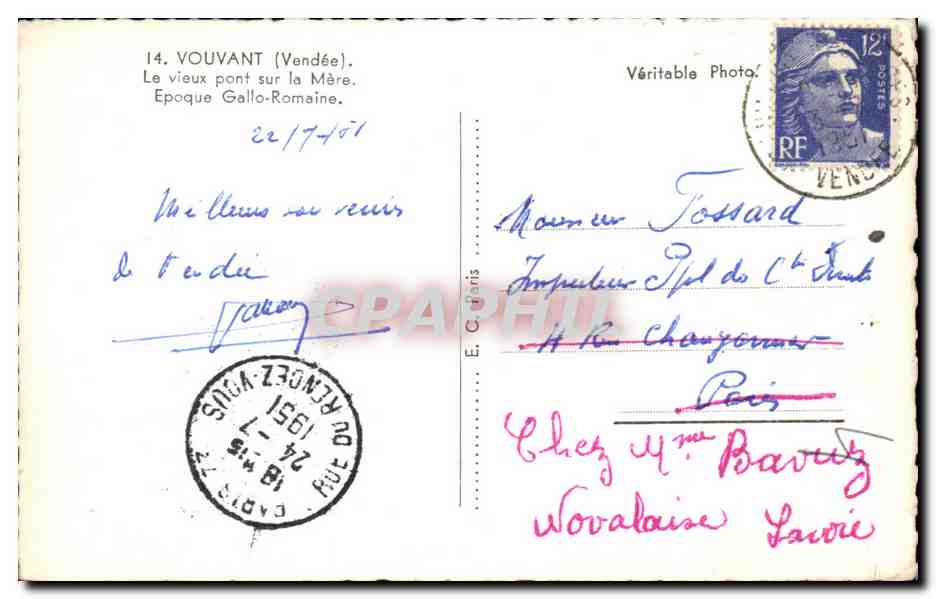 14. VOUVANT (Vendée).
Le vieux pont sur la Mère.
Epoque Gallo-Romaine.
Véritable Photo.
12F
POSTES
RF
1951
VENDEE
22/7-51
Meilleurs souvenirs
de Vendée
E. C. Paris
CPAPHIL
Monsieur Tossard
Inspecteur Ppl des Ctes
4 Rue
Paris
Chez Mme Bavuz
Novalaise Savoie
PARIS 72 RUE DU RENDEZ-VOUS
18H15
24-7
1951